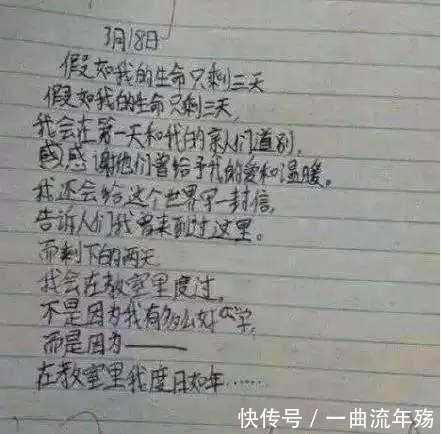 3月18日
假如我的生命只剩三天
假如我的生命只剩三天,
我会在第一天和我的亲人们道别,
感感谢他们曾给予我的爱和温暖。
我还会给这个世界写一封信,
告诉人们我曾来到过这里。
而剩下的两天
我会在教室里度过,
不是因为我有多么好学,
而是因为——
在教室里我度日如年……
快传号/一曲流年殇